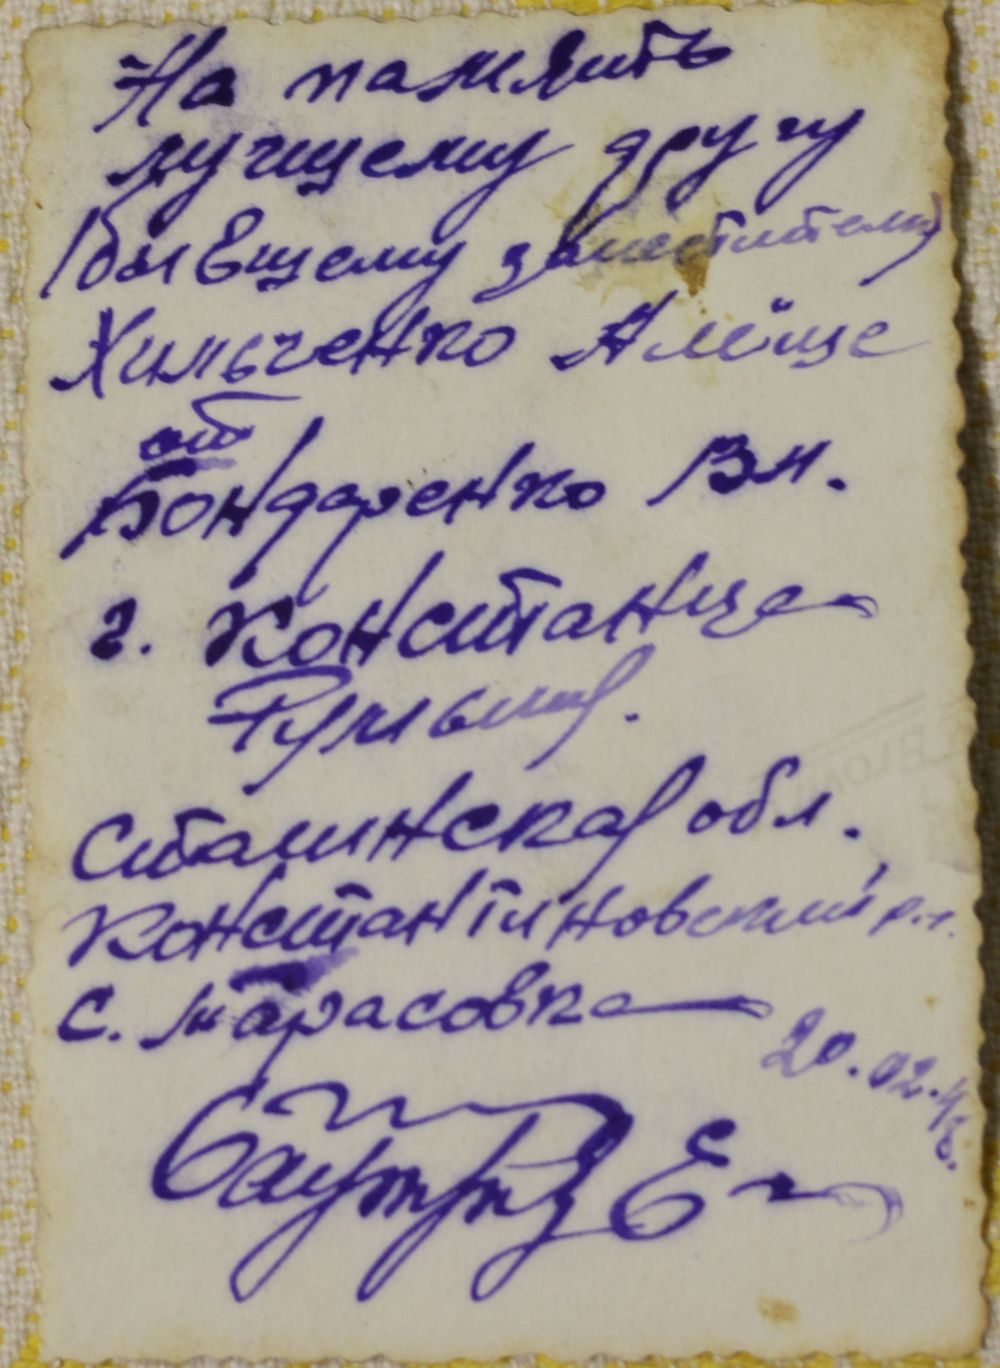 На память
лучшему другу
(бывшему заместителю)
Хильченко Алёше
от
Бондаренко Вл.
г. Констанце
Румыния.
Сталинская обл.,
Константиновский р.н.
с. Тарасовка
20.02.48.